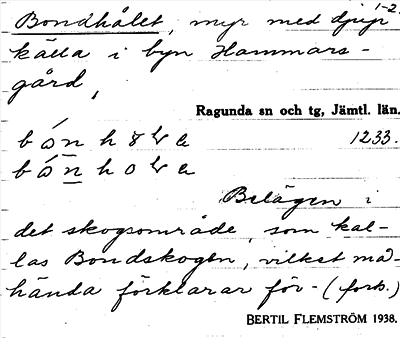 Bondhålet, myr med djup 1-2.
källa i byn Hammars-
gård,
Ragunda sn och tg, Jämtl. län.
1233.
Belägen i
det skogsområde, som kal-
las Bondskogen, vilket må-
hända förklarar för- (forts.)
BERTIL FLEMSTRÖM 1938.